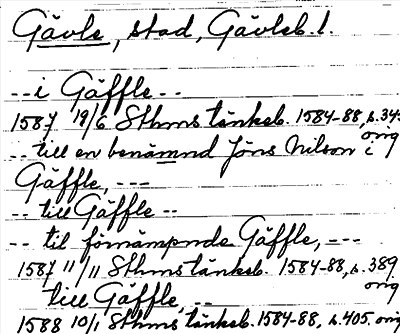 Gävle, stad, Gävleb. l.
-- i Gäffle --
1587 19/6 Sthms tänkeb. 1584-88, s. 345
orig
-- till en benämnd Jöns Nilson i
Gäffle, ---
-- till Gäffle --
-- til förnämpnde Gäffle, ---
1587 11/11 Sthms tänkeb. 1584-88, s. 389
orig
till Gäffle, --
1588 10/1 Sthms tänkeb. 1584-88, s. 405. orig